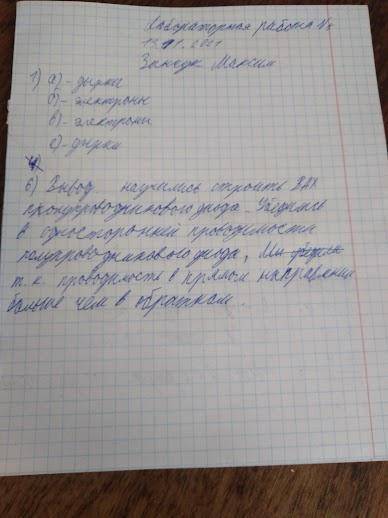 Лабораторная работа №
2021
Максим
1) а) - дырки
б) - электроны
в) - электроны
с) - дырки
6) Вывод научились строить ВАХ
полупроводникового диода. Убедились
в односторонний проводимости
полупроводникового диода,
т.к. проводимость в прямом направлении
больше чем в обратном.